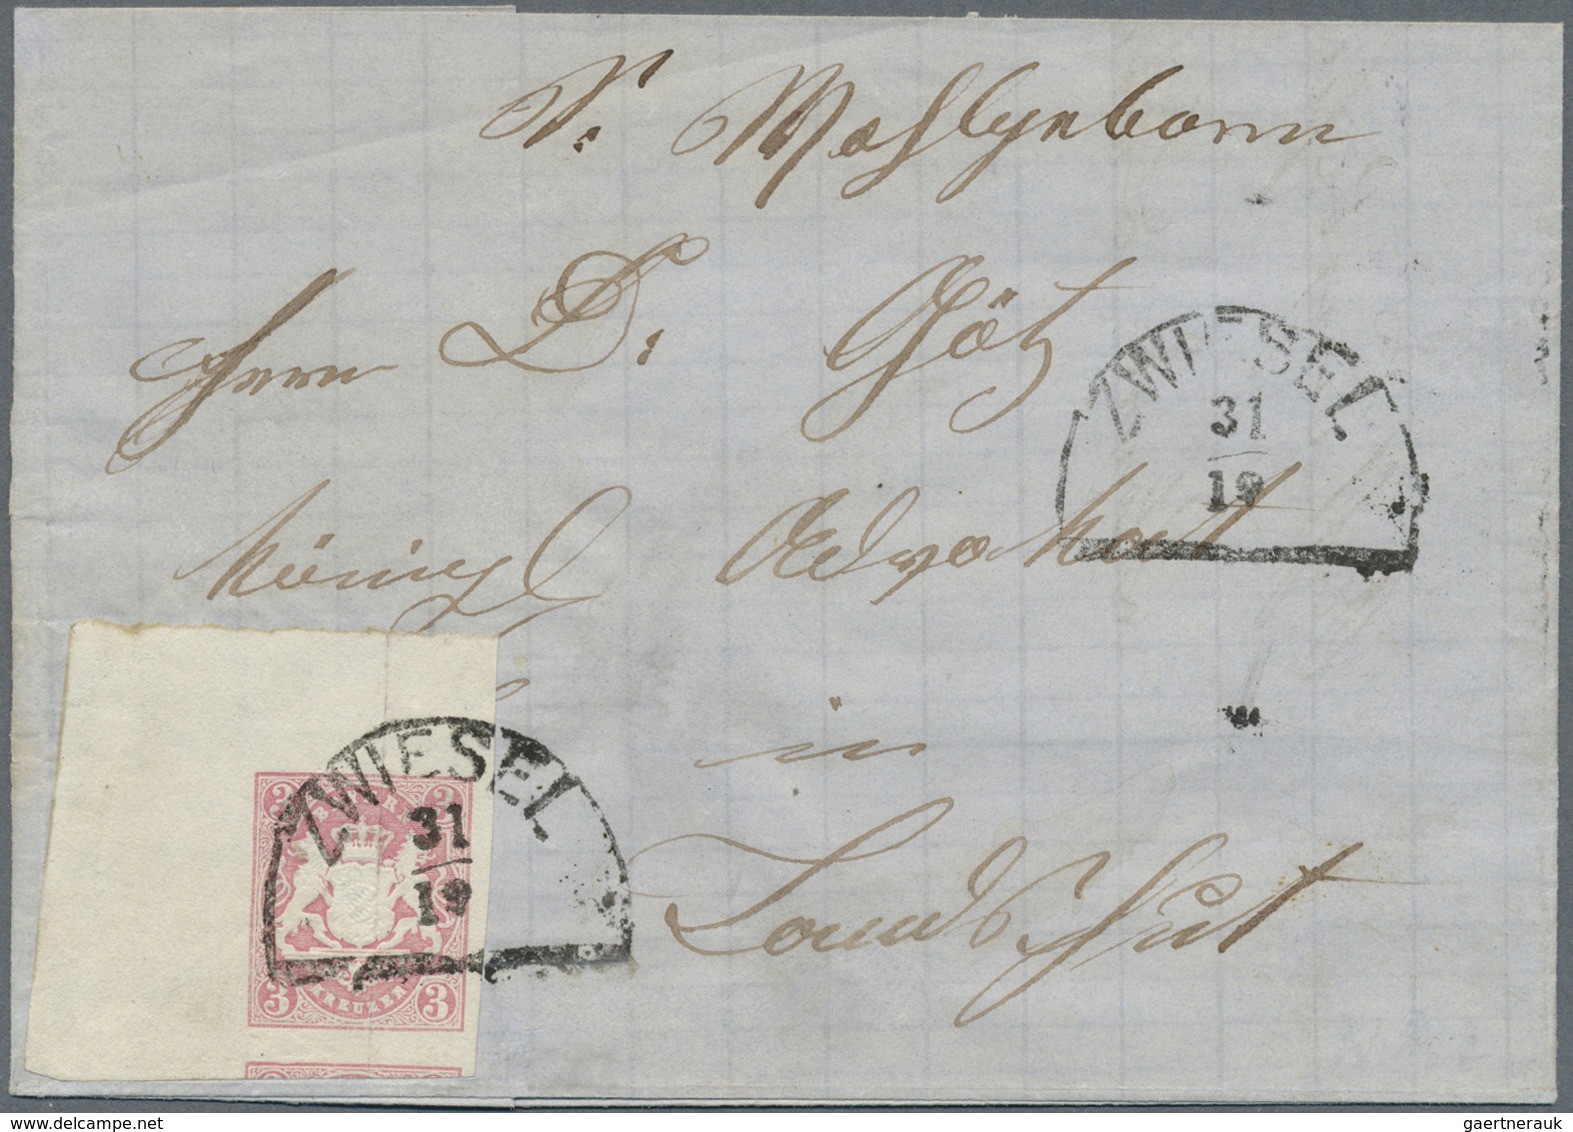 Herrn Dr. Götz
ZWIESEL
31
19
königl Advokat
in
ZWIESEL
31
19
3 3
Landshut
3 KREUZER 3
gaertnerauk
delcampe.net